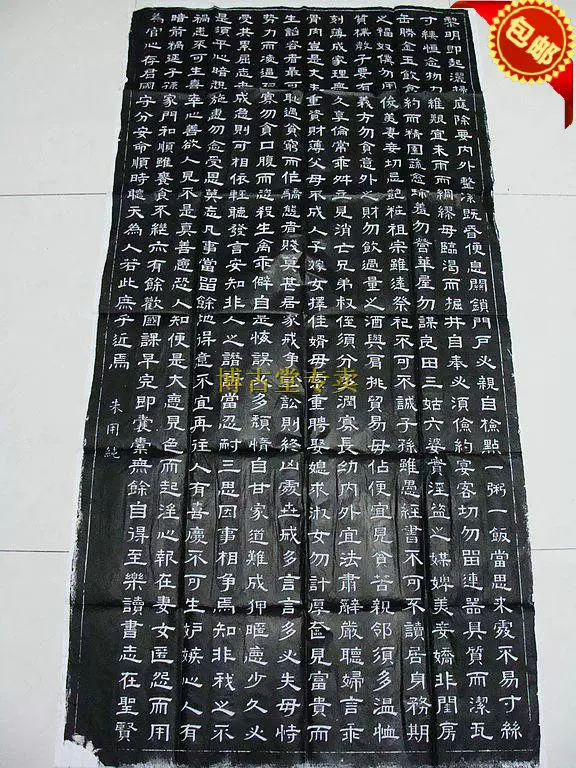 包邮
黎明即起灑掃庭除要內外整潔既昏便息關鎖門戶必親自檢點一粥一飯當思來處不易寸絲
寸縷恒念物力維艱宜未雨而綢繆毋臨渴而掘井自奉必須儉約宴客切勿留連器具質而潔瓦
缶勝金玉飲食約而精園蔬愈珍羞勿營華屋勿謀良田三姑六婆實淫盜之媒婢美妾嬌非閨房
之福奴僕勿用俊美妻妾切忌艷粧祖宗雖遠祭祀不可不誠子孫雖愚經書不可不讀居身務期
質樸教子要有義方勿貪意外之財勿飲過量之酒與肩挑貿易毋佔便宜見貧苦親鄰須多溫恤
刻薄成家理應久享倫常乖舛立見消亡兄弟叔侄須分多潤寡長幼內外宜法肅辭嚴聽婦言乖
骨肉豈是丈夫重資財薄父母不成人子嫁女擇佳婿毋索重聘娶媳求淑女勿計厚奩見富貴而
生諂容者最可恥遇貧窮而作驕態者賤莫甚居家戒爭訟訟則終凶處世戒多言言多必失毋恃
勢力而凌逼孤寡勿貪口腹而恣殺生禽乖僻自是悔誤必多頹惰自甘家道難成狎暱惡少久必
受其累屈志老成急則可相依輕聽發言安知非人之譖當忍耐三思因事相爭焉知非我之不必
是須平心暗想施惠勿念受恩莫忘凡事當留餘地得意不宜再往人有喜慶不可生妒嫉心人有
禍患不可生喜幸心善欲人見不是真善惡恐人知便是大惡見色而起淫心報在妻女匿怨而用
暗箭禍延子孫家門和順雖饔飧不繼亦有餘歡國課早完即囊橐無餘自得至樂讀書志在聖賢
為官心存君國守分安命順時聽天為人若此庶乎近焉 朱用純
博古堂专卖